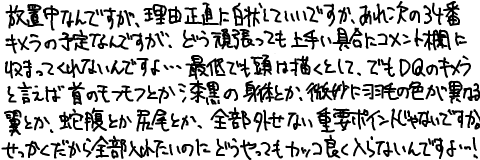 放置中なんですが、理由正直に白状していいですか、あれ次の34番
キメラの予定なんですが、どう頑張っても上手い具合にコメント欄に
収まってくれないんですよ…最低でも頭は描くとして、でもDQのキメラ
と言えば首のモフモフとか漆黒の身体とか、微妙に羽毛の色が異なる
翼とか、蛇腹とか尻尾とか、全部外せない重要ポイントじゃないですか。
せっかくだから全部入れたいのにどうやってもカッコ良く入らないんですよ…!